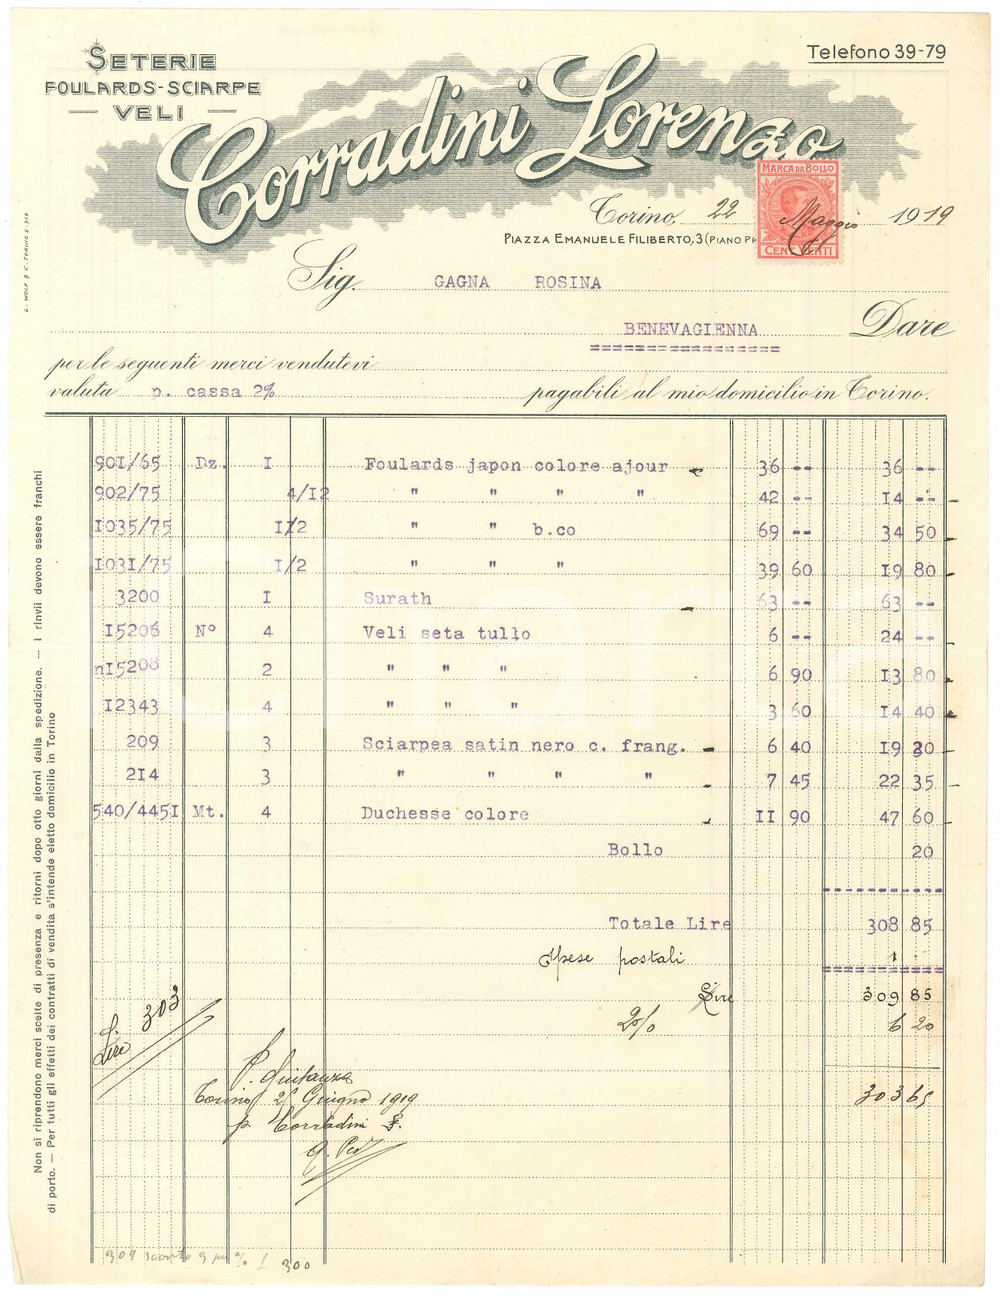 SETERIE
FOULARDS-SCIARPE
VELI
Telefono 39-79
Corradini Lorenzo
MARCA DA BOLLO
CENT. VENTI
Torino, 22 Maggio 1919
PIAZZA EMANUELE FILIBERTO, 3 (PIANO P
Sig. GAGNA ROSINA
BENEVAGIENNA Dare
================
per le seguenti merci vendutevi
valuta p. cassa 2% pagabili al mio domicilio in Torino.
901/65 Dz. I Foulards japon colore ajour 36 -- 36 --
902/75 4/12 " " " " 42 -- 14 --
1035/75 I/2 " " b.co 69 -- 34 50
1031/75 I/2 " " " 39 60 19 80
3200 I Surath 63 -- 63 --
15206 N° 4 Veli seta tullo 6 -- 24 --
n15208 2 " " " 6 90 13 80
12343 4 " " " 3 60 14 40
209 3 Sciarpea satin nero c. frang. 6 40 19 20
214 3 " " " " 7 45 22 35
540/4451 Mt. 4 Duchesse colore 11 90 47 60
Bollo 20
Totale Lire 308 85
Spese postali 1
Lire 309 85
2% 6 20
303 65
Lire 303
P. Quitanza
Torino 25 Giugno 1919
p Corradini L.
309 sconto 3 per % £ 300
Non si riprendono merci scelte di presenza e ritorni dopo otto giorni dalla spedizione. — I rinvii devono essere franchi
di porto. — Per tutti gli effetti dei contratti di vendita s'intende eletto domicilio in Torino